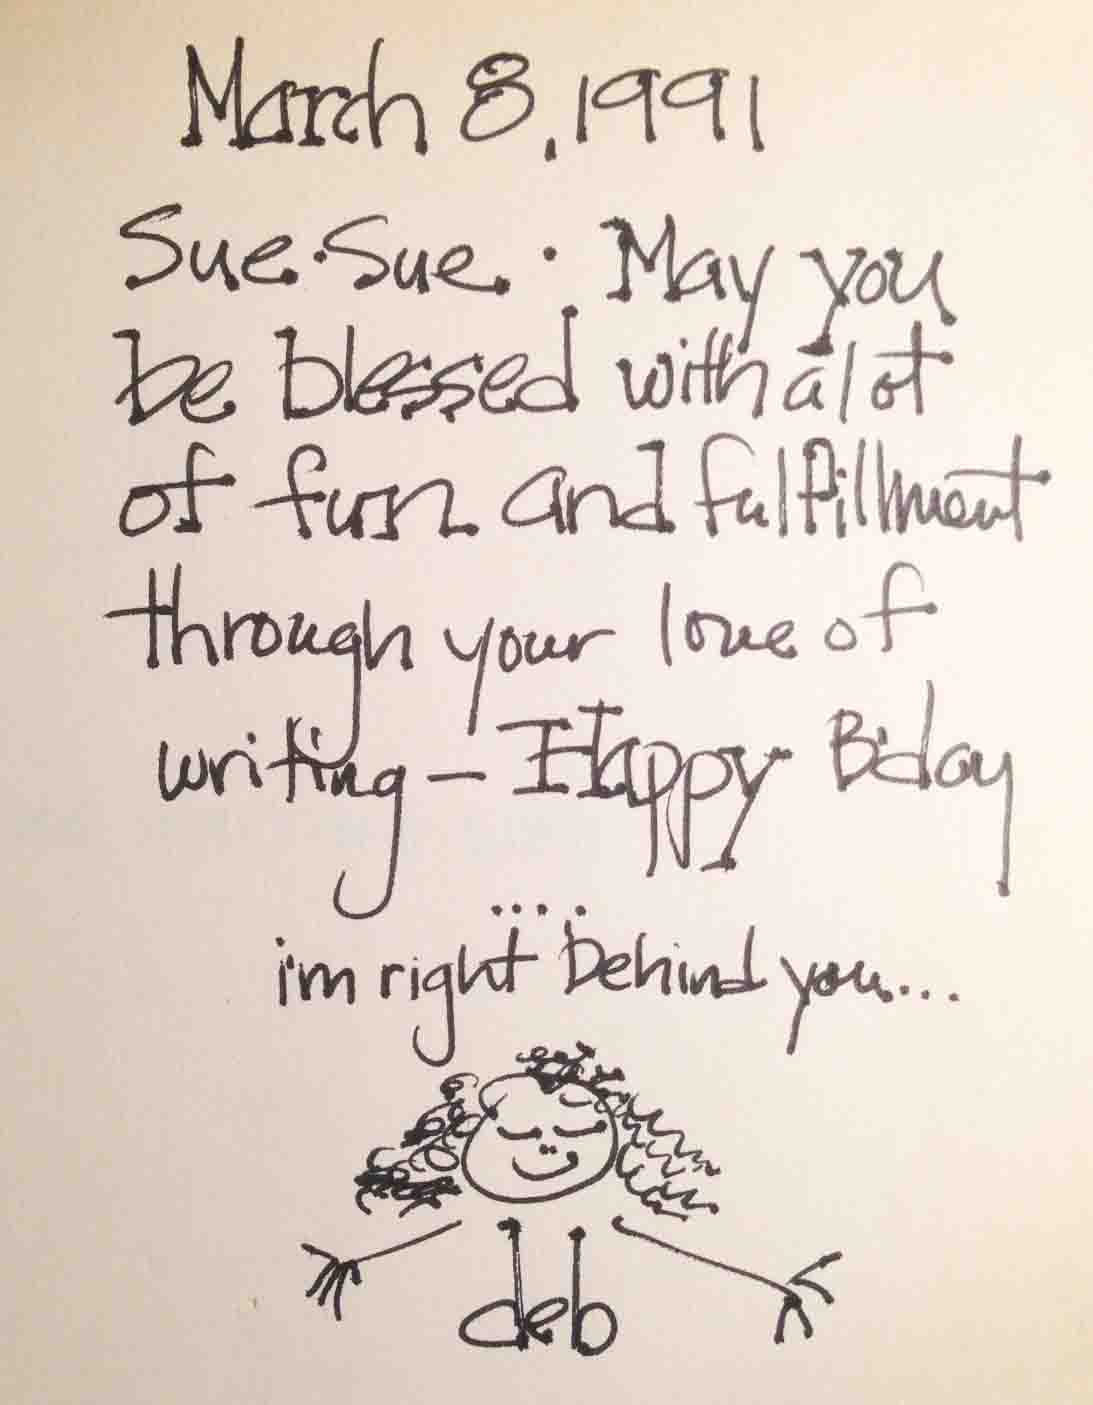 March 8, 1991
Sue·Sue · May you
be blessed with a lot
of fun and fulfillment
through your love of
writing — Happy B'day
....
i'm right behind you...
deb